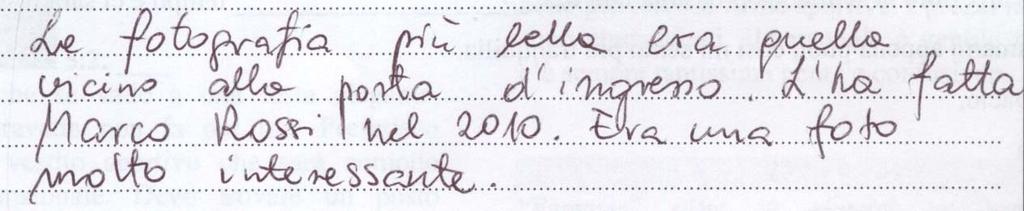 Le fotografia più bella era quella
vicino alla porta d'ingresso. L'ha fatta
Marco Rossi nel 2010. Era una foto
molto interessante.